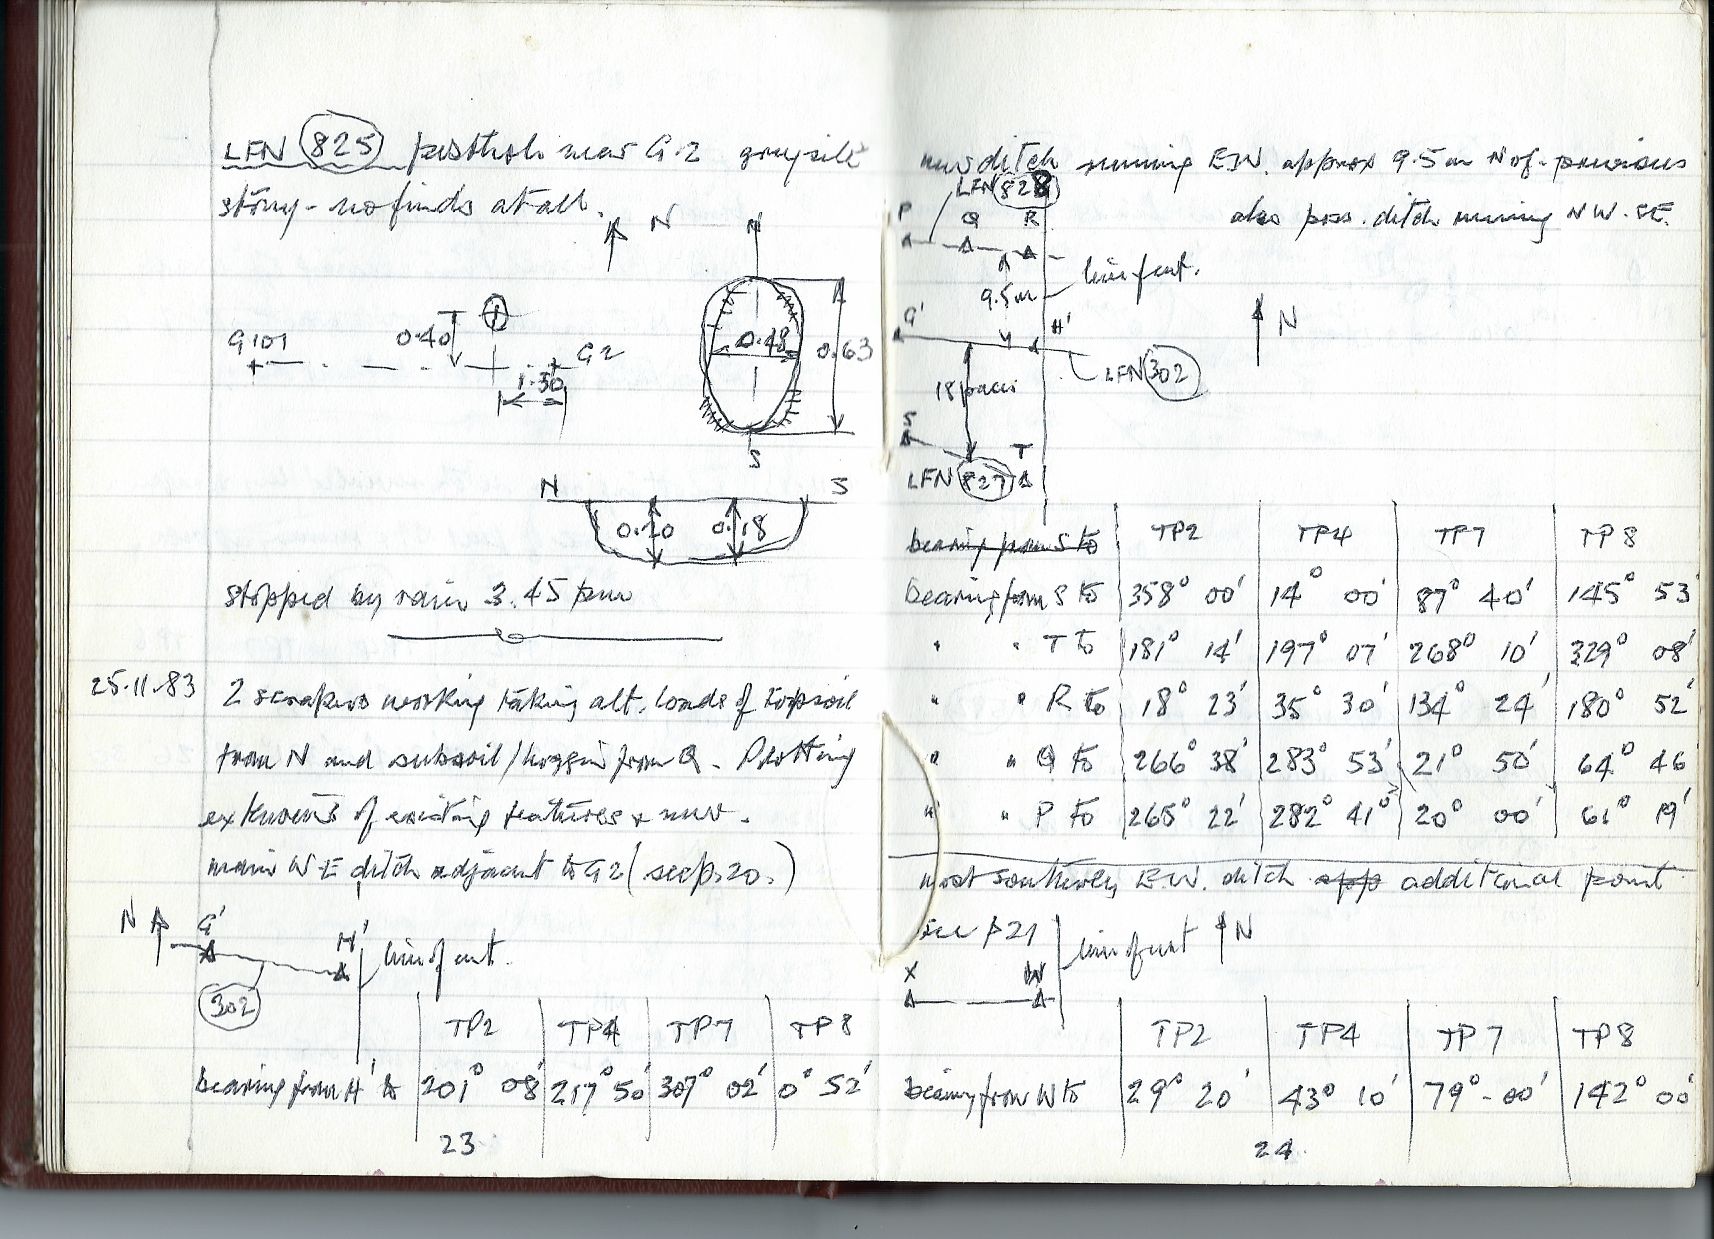 LFN 825 posthole near G.2 grey silt
stony - no finds at all.
N
N
G101
0.40
G2
1.30
0.48
0.63
S
N
S
0.20
0.18
stopped by rain 3.45 pm
25.11.83 2 scrapers working taking alt. loads of topsoil
from N and subsoil/hoggin from Q. Plotting
extensions of existing features & new.
main W-E ditch adjacent to G2 (see p.20.)
N G' H' line of cut.
302
TP2 TP4 TP7 TP8
bearing from H' to 201° 08' 217° 50' 307° 02' 0° 52'
23
new ditch running E.W. approx 9.5m N of previous
LFN 828
also poss. ditch running NW-SE.
P Q R
line of cut.
9.5m
G' H'
N
LFN 302
18 paces
S T
LFN 827
bearing from S to TP2 TP4 TP7 TP8
bearing from S to 358° 00' 14° 00' 87° 40' 145° 53'
" " T to 181° 14' 197° 07' 268° 10' 329° 08'
" " R to 18° 23' 35° 30' 134° 24' 180° 52'
" " Q to 266° 38' 283° 53' 21° 50' 64° 46'
" " P to 265° 22' 282° 41' 20° 00' 61° 19'
most southerly E.W. ditch app additional point
see p21
line of cut N
X W
TP2 TP4 TP7 TP8
bearing from W to 29° 20' 43° 10' 79° - 00' 142° 00'
24.